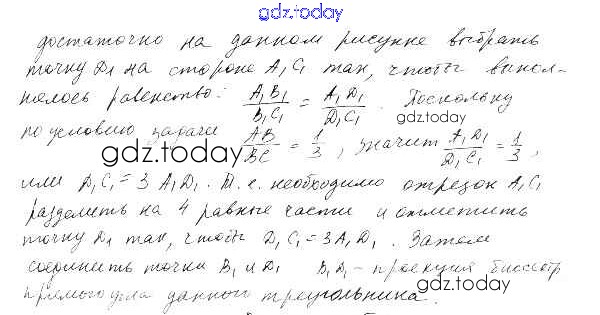 gdz.today
достаточно на данном рисунке выбрать
точку D₁ на стороне A₁C₁ так, чтобы выпол-
нялось равенство: A₁B₁/B₁C₁ = A₁D₁/D₁C₁. Поскольку
по условию задачи AB/BC = 1/3, значит A₁D₁/D₁C₁ = 1/3,
gdz.today
или D₁C₁ = 3 A₁D₁. Т.е. необходимо отрезок A₁C₁
разделить на 4 равные части и отметить
точку D₁ так, чтобы D₁C₁ = 3A₁D₁. Затем
соединить точки B₁ и D₁ B₁D₁ – проекция биссектр
прямого угла данного треугольника.
gdz.today